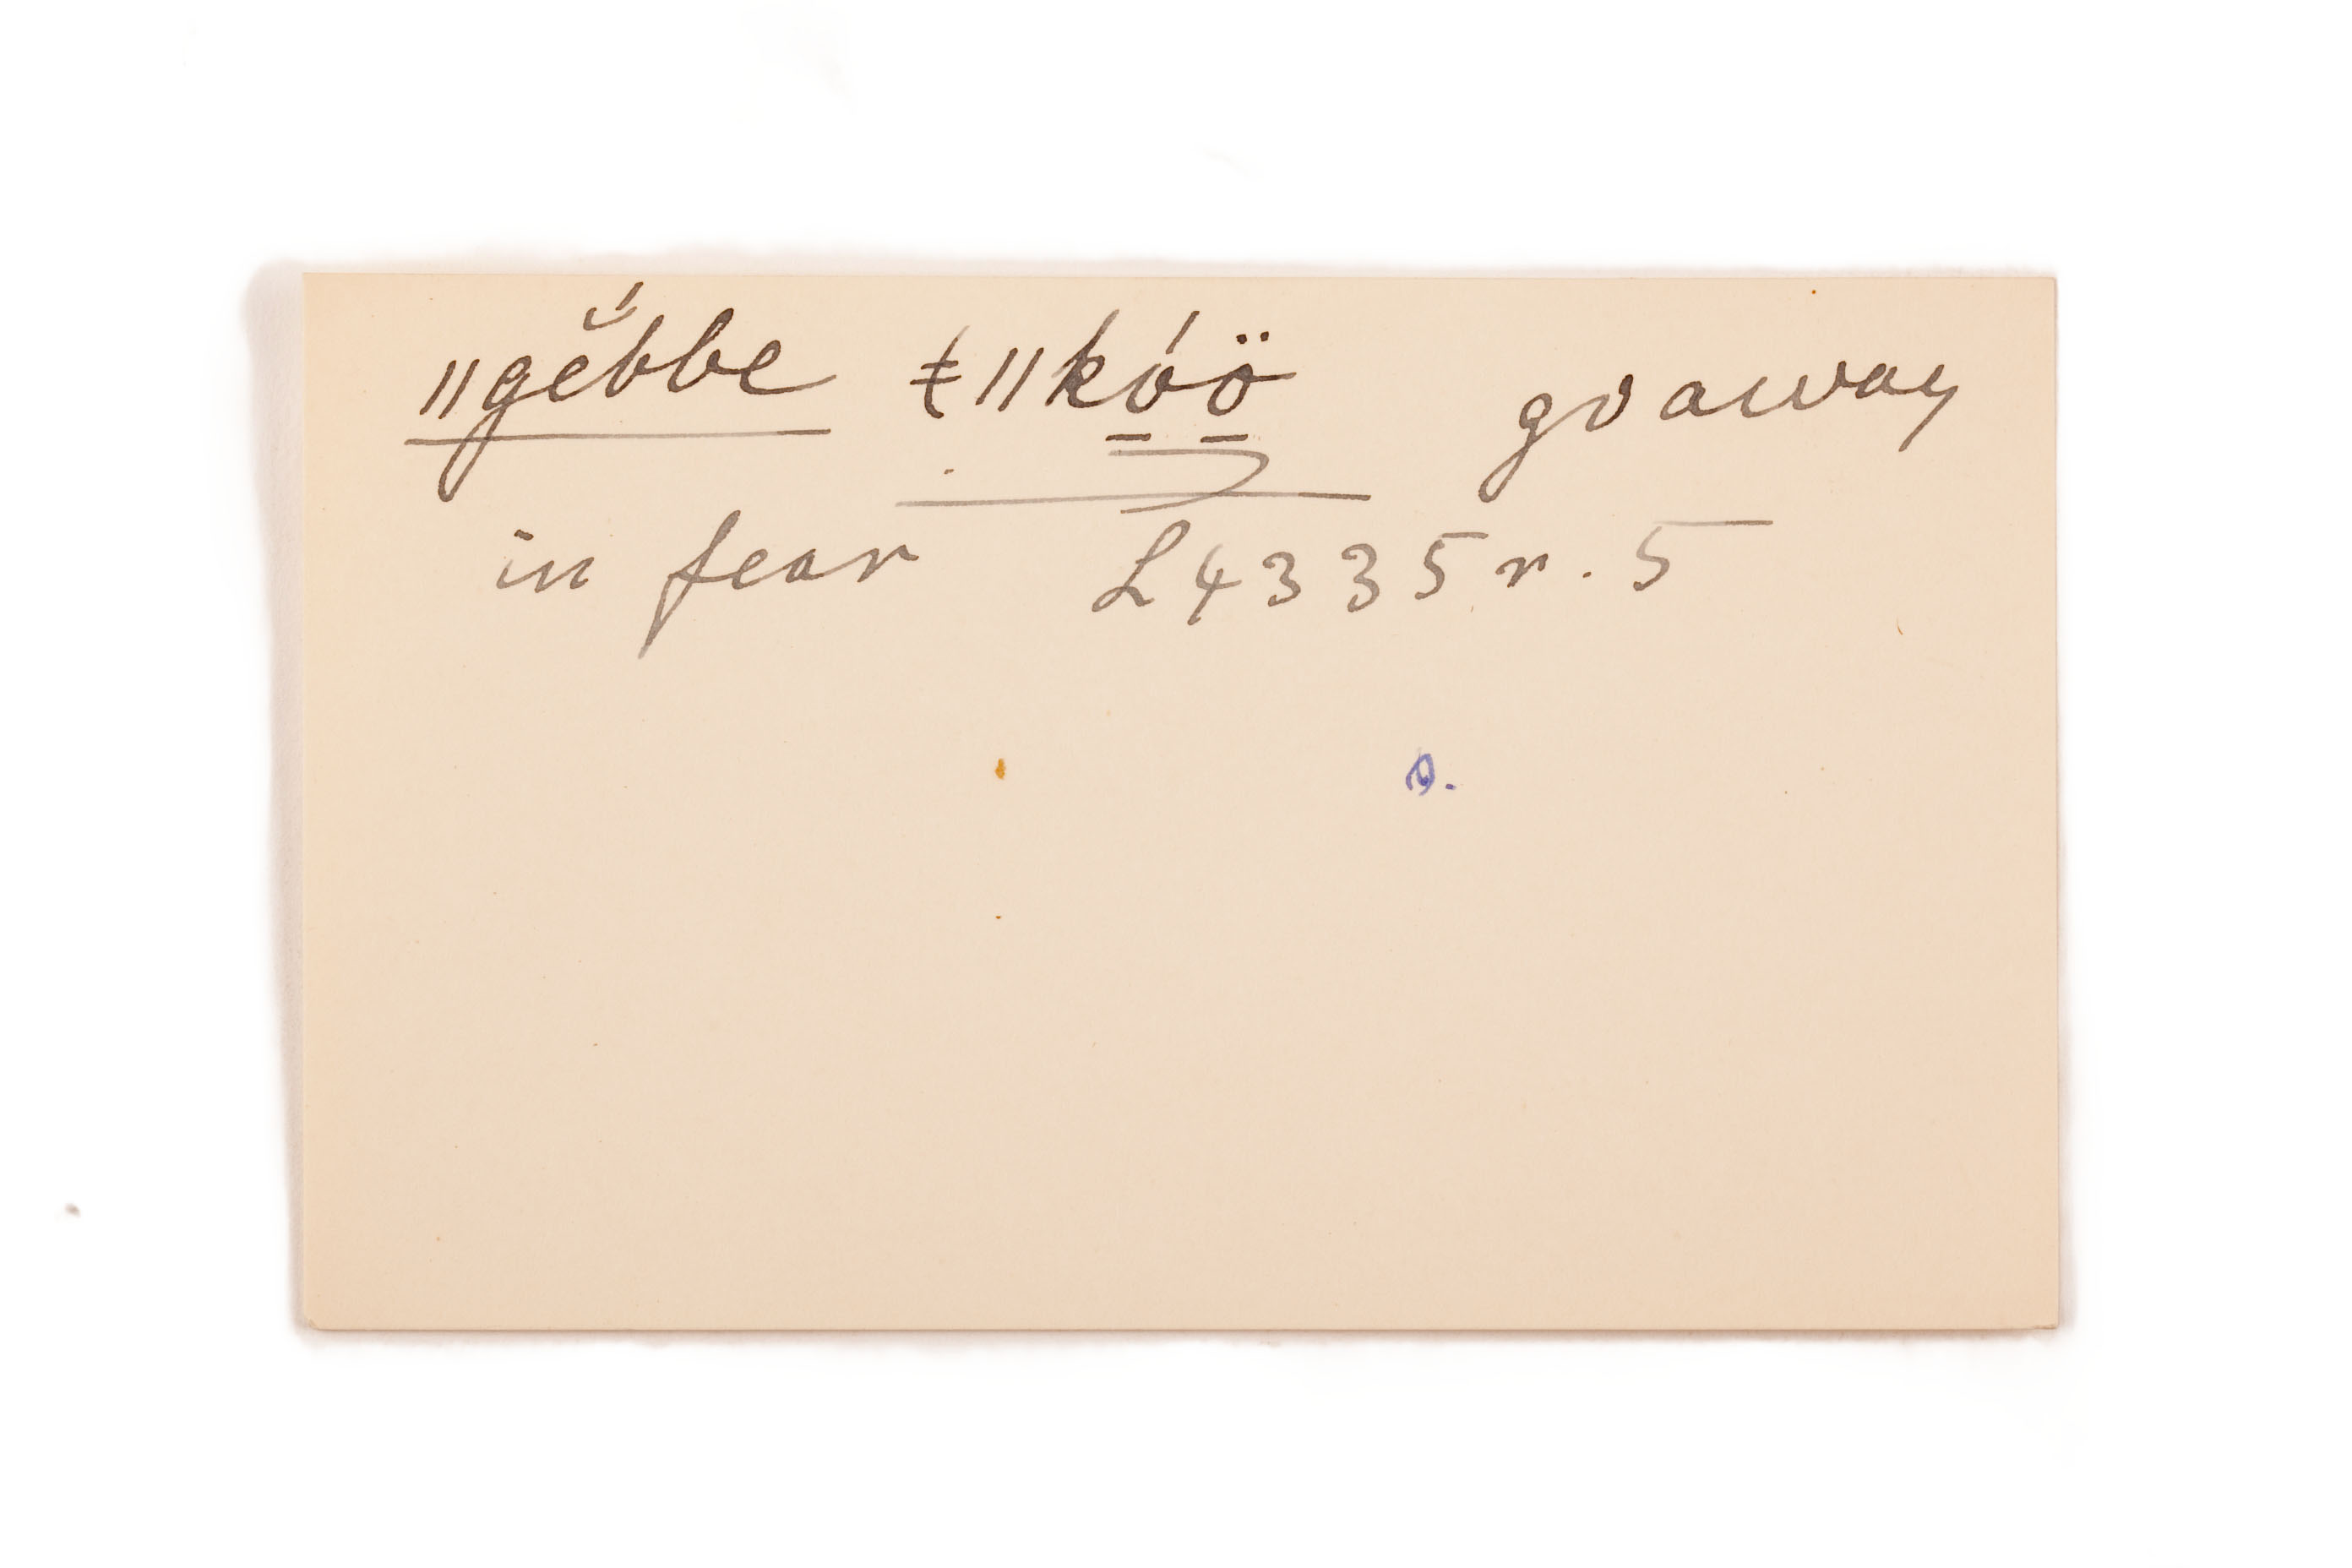 ǁgĕ́bbe ǂǁkó̱ö̱ go away
in fear L4335r.5